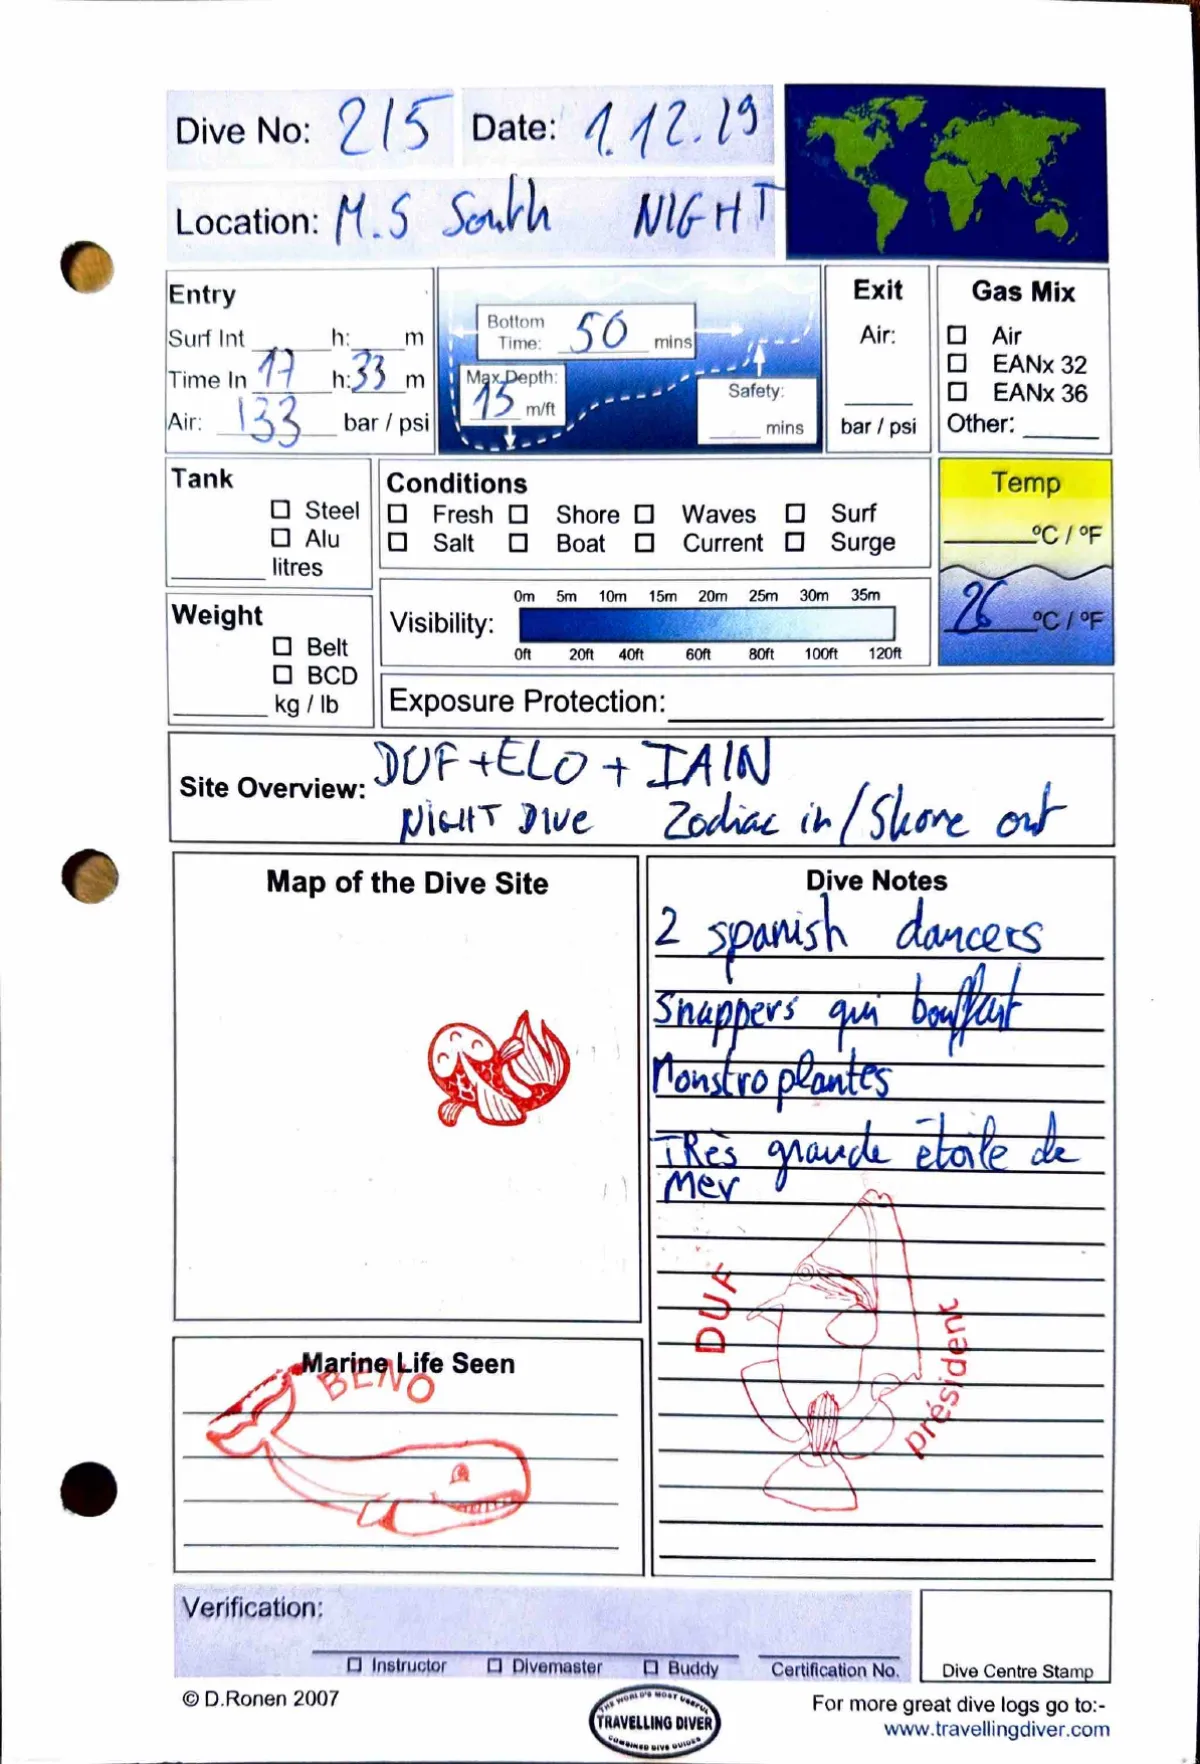 Dive No: 215 Date: 1.12.19
Location: M.S South NIGHT
Entry
Surf Int ____ h: ____ m
Time In 17 h: 33 m
Air: 133 bar / psi
Bottom Time: 50 mins
Max Depth: 15 m/ft
Safety: ____ mins
Exit
Air:
____
bar / psi
Gas Mix
☐ Air
☐ EANx 32
☐ EANx 36
Other: ____
Tank
☐ Steel
☐ Alu
____ litres
Conditions
☐ Fresh ☐ Shore ☐ Waves ☐ Surf
☐ Salt ☐ Boat ☐ Current ☐ Surge
Temp
____ °C / °F
26 °C / °F
Weight
☐ Belt
☐ BCD
____ kg / lb
0m 5m 10m 15m 20m 25m 30m 35m
Visibility:
0ft 20ft 40ft 60ft 80ft 100ft 120ft
Exposure Protection: ____
Site Overview: DUF + ELO + IAIN
NIGHT DIVE Zodiac in / Shore out
Map of the Dive Site
Dive Notes
2 spanish dancers
Snappers qui bouffait
Monstroplantes
TRès grande étoile de
mer
DUF
président
Marine Life Seen
BENO
Verification:
☐ Instructor ☐ Divemaster ☐ Buddy Certification No.
Dive Centre Stamp
© D.Ronen 2007
THE WORLD'S MOST USEFUL
TRAVELLING DIVER
COMBINED DIVE GUIDES
For more great dive logs go to:-
www.travellingdiver.com